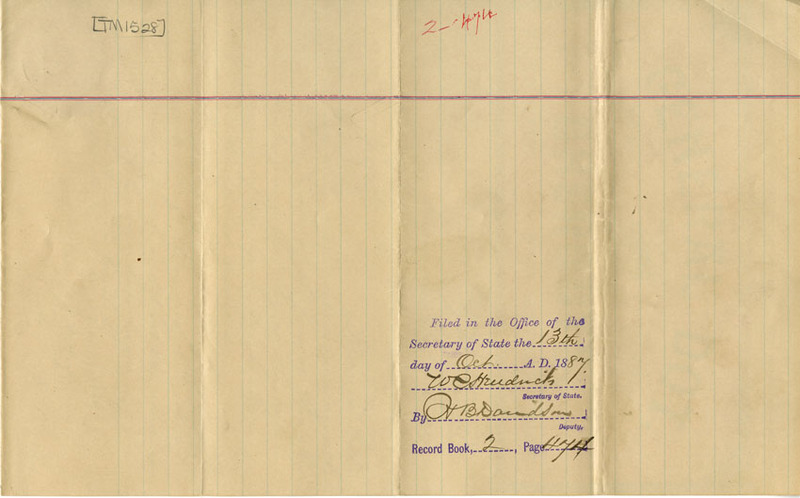 [TM1528]
2-474
Filed in the Office of the
Secretary of State the 13th
day of Oct A. D. 1887
W C Hendrick
Secretary of State.
By H B Davidson
Deputy,
Record Book, 2, Page 474